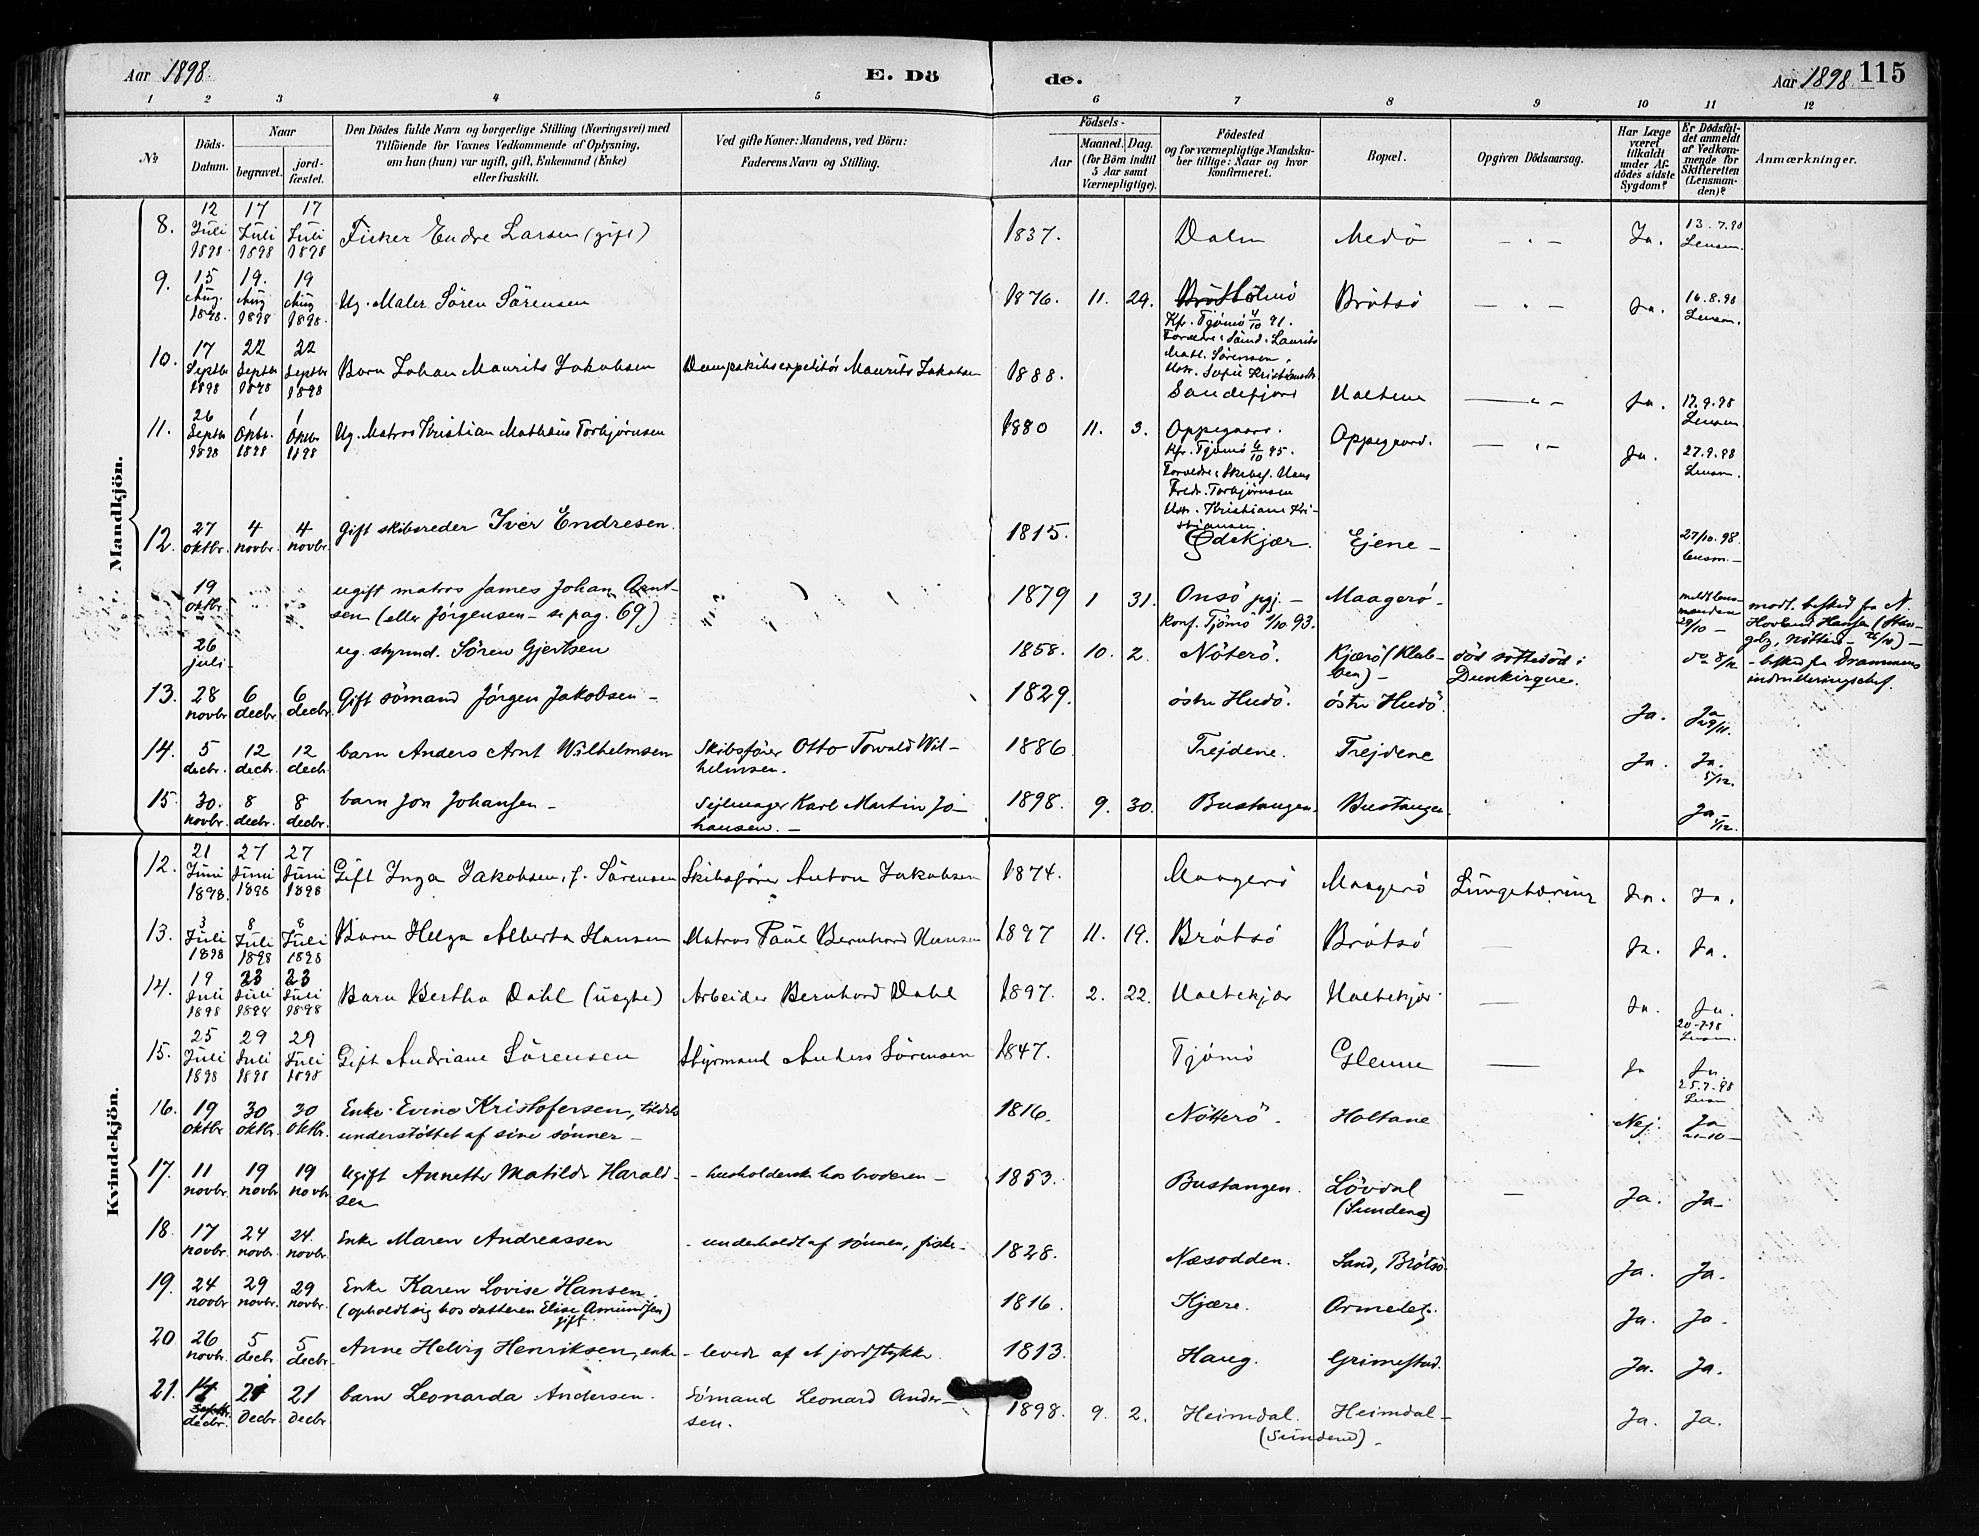 Aar 1898.
E. Dö
de.
Aar 1898 115
1 2 3 4 5 6 7 8 9 10 11 12
№
Döds-Datum.
Naar
begravet.
jord-fæstet.
Den Dödes fulde Navn og borgerlige Stilling (Næringsvei) med
Tilföiende for Voxnes Vedkommende af Oplysning,
om han (hun) var ugift, gift, Enkemand (Enke)
eller fraskilt.
Ved gifte Koner: Mandens, ved Börn:
Faderens Navn og Stilling.
Födsels-
Aar
Maaned. Dag.
(for Börn indtil
5 Aar samt
Værnepligtige).
Födested
og for værnepligtige Mandska-
ber tillige: Naar og hvor
konfirmeret.
Bopæl.
Opgiven Dödsaarsag.
Har Læge
været
tilkaldt
under Af-
dödes sidste
Sygdom?
Er Dödsfal-
det anmeldt
af Vedkom-
mende for
Skifteretten
(Lensman-
den)?
Anmærkninger.
Mandkjön.
8. 12 Juli 1898. 17 Juli 1898 17 Juli 1898 Fisker Endre Larsen (gift) 1837. Dalen Medö - " - Ja. 13.7.98 Lensm.
9. 15 Aug. 1898. 19. Aug 1898 19 Aug 1898. Ug. Maler Sören Sörensen 1876. 11. 29. Brötsö — " — Ja. 16.8.98 Lensm.
Kfr. Tjömö 4/10 91.
Forældre: Sömd. Laurits
Math. Sörensen,
Ustr. Sofie
10. 17 Septbr 1898 22 Septbr 1898 22 Septbr 1898 Barn Johan Maurits Jakobsen Dampskibsexpeditör Maurits Jakobsen 1888. Sandefjord — " — Ja. 17.9.98 Lensm
11. 26 Septbr 1898 1 Oktbr. 1898 1 Oktbr 1898 Ug. Matros Kristian Mathæus Torbjörnsen 1880 11. 3. Oppegaard. Oppegaard. — " — Ja. 27.9.98 Lensm.
Kfr. Tjömö 6/10 95.
Forældre: Skibsf. Hans
Fredr. Torbjörnsen
Ustr. Kristiane Kri-
stiansen.
12. 27 oktbr. 4 novbr. 4 novbr. Gift skibsreder Iver Endresen. 1815. Ødekjær. Ejene — 27/10.98. lensm. —
19 oktbr. ugift matros James Johan Arnt-
sen (eller Jörgensen — se pag. 69) 1879 1 31. Onsö pgj. — Maagerö. meldt lens-
manden 29/10 — modt. besked fra N.
Konf. Tjömö 1/10 93. Hovland Hansen
26 juli — ug. styrmd. Sören Gjertsen 1858. 10. 2. Nöterö. Kjærö (Klub-
ben) — död sottedöd i
Dunkirque. do 8/12 — besked fra Drammens
indrulleringschef.
13. 28 novbr 6 decbr. 6 decbr. Gift sömand Jörgen Jakobsen — 1829. östre Hudö. östre Hudö. Ja. Ja 29/11.
14. 5 decbr. 12 decbr. 12 decbr. barn Anders Arnt Wilhelmsen Skibsförer Otto Torvald Wil-
helmsen. 1886. Trejdene. Trejdene Ja. Ja. 5/12.
15. 30. novbr. 8 decbr. 8 decbr. barn Jon Johansen — Sejlmager Karl Martin Jo-
hansen. — 1898. 9. 30. Bustangen. Bustangen. Ja — 1/12.
Kvindekjön.
12. 21 Juni 1898. 27 Juni 1898 27 Juni 1898 Gift Inga Jakobsen, f. Sörensen Skibsförer Anton Jakobsen 1874. Maagerö Maagerö Lungetæring Ja. Ja.
13. 3 Juli 1898 8 Juli 1898 8 Juli 1898 Barn Helga Alberta Hansen Matros Paul Bernhard Hansen 1897 11. 19. Brötsö Brötsö — Ja. Ja.
14. 19 Juli 1898 23 Juli 1898 23 Juli 1898 Barn Bertha Dahl (uægte) Arbeider Bernhard Dahl 1897. 2. 22. Holtekjær Holtekjær. — Ja. Ja. 20-7-98 Lensm.
15. 25 Juli 1898 29 Juli 1898 29 Juli 1898 Gift Andriane Sörensen Styrmand Anders Sörensen 1847. Tjömö Glenne — Ja Ja. 25.7.98 Lensm
16. 19 oktbr 30 oktbr. 30 oktbr. Enke Evine Kristofersen, tildels
understöttet af sine sönner — 1816. Nötterö. Holtane Nej. Ja 21-10 —
17. 11 novbr. 19 novbr 19 novbr Ugift Annette Matilde Harald-
sen — husholderske hos broderen — 1853. Bustangen. Lövdal
(Sundene) — Ja. Ja —
18. 17 novbr. 24 novbr. 24. novbr. Enke Maren Andreassen — underholdt af sönnen, fisker — 1828. Næsodden. Sand, Brötsö. Ja. Ja.
19. 24 novbr 29 novbr. 29 novbr. Enke Karen Lovise Hansen.
(opholdt sig hos datteren Elise Amundsen)
gift 1816. Kjære. Ormelet. Ja. Ja.
20 26 novbr. 5 decbr. 5 decbr. Anne Helvig Henriksen, enke — levede af et jordstykke. 1813. Haug. Grimestad. Ja. Ja.
21. 14 decbr. 21 Decbr 21 Decbr barn Leonarda Andersen. Sömand Leonard Ander-
sen. 1898. 9. 2. Heimdal. Heimdal —
(Sundene). Ja. Ja.